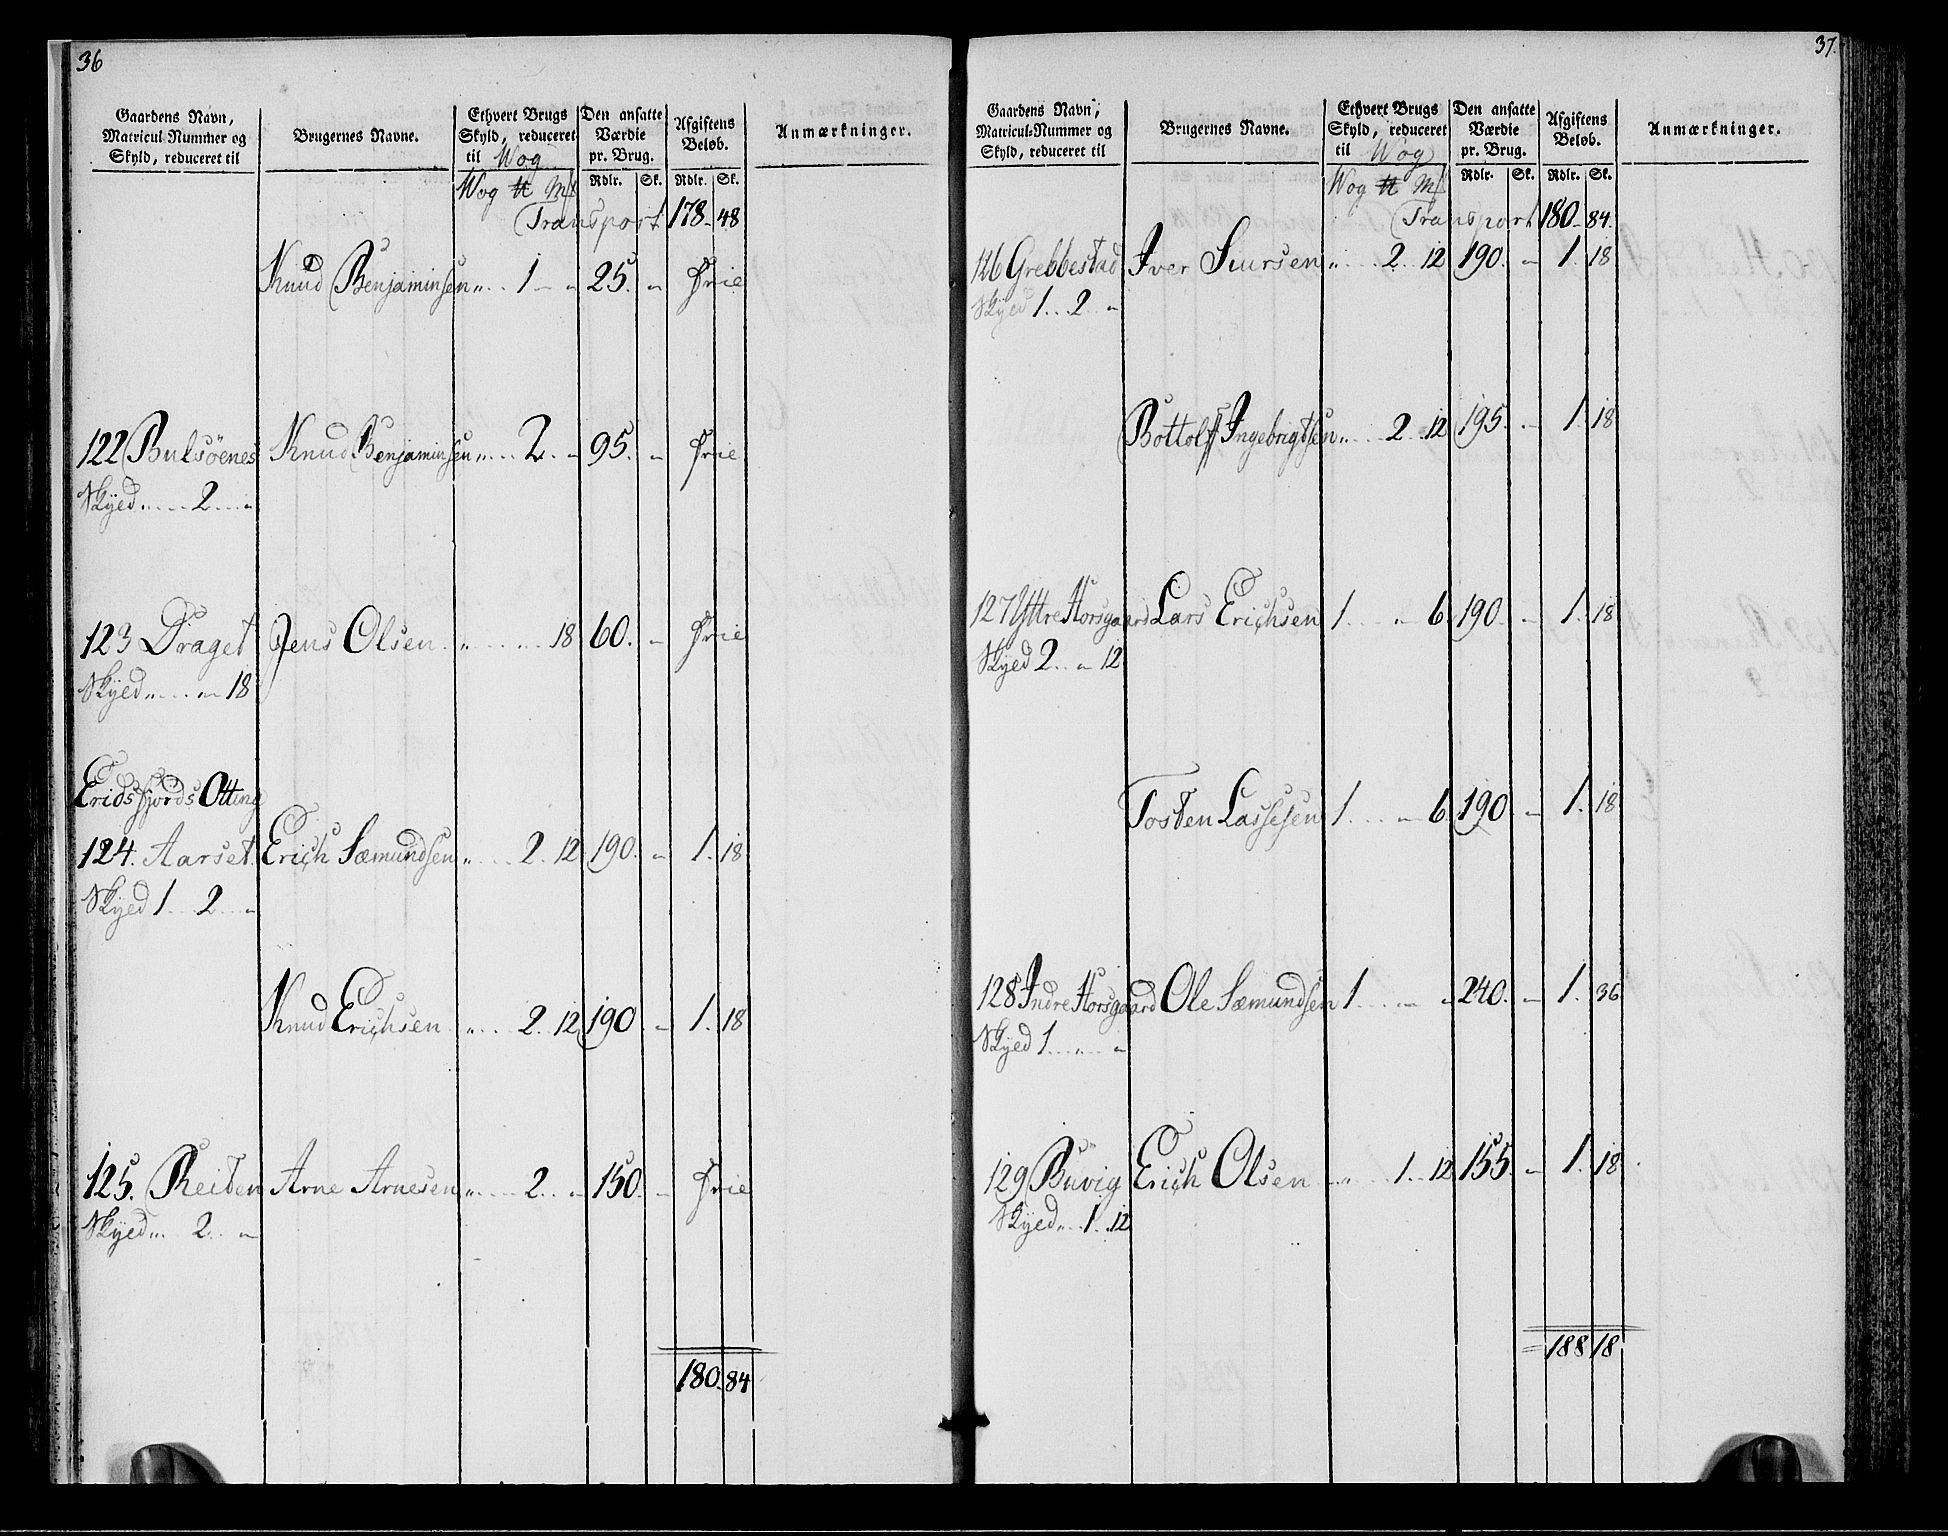 36
Gaardens Navn, Matricul-Nummer og Skyld, reduceret til | Brugernes Navne. | Ethvert Brugs Skyld, reduceret til Wog | Den ansatte Værdie pr. Brug. | Afgiftens Beløb. | Anmærkninger.
Wog ℔ Mſ | Rdlr. | Sk. | Rdlr. | Sk.
Transport 178. 48
Knud Benjaminsen „ 1 „ 25. „ Frie
122 Bulsøenes Knud Benjaminsen „ 2 „ 95. „ Frie
Skyed „ 2 „
123 Draget Jens Olsen „ „ 18 60. „ Frie
Skyed „ „ 18
Eridsfjords Otting
124. Aarset Erich Sæmundsen „ 2 12 190. „ 1. 18
Skyed 1 2 „
Knud Erichsen „ 2 12 190 „ 1. 18
125. Reiten Arne Arnesen „ 2 „ 150. „ Frie
Skyed „ 2 „
180. 84
37.
Gaardens Navn, Matricul-Nummer og Skyld, reduceret til | Brugernes Navne. | Ethvert Brugs Skyld, reduceret til Wog | Den ansatte Værdie pr. Brug. | Afgiftens Beløb. | Anmærkninger.
Wog ℔ Mſ | Rdlr. | Sk. | Rdlr. | Sk.
Transport 180. 84.
126 Grebbestad Iver Siursen „ 2 12 190. „ 1. 18
Skyed 1 2 „
Bottolf Ingebrigtsen „ 2 12 195. „ 1. 18
127 Yttre Horsgaard Lars Erichsen 1 „ 6 190. „ 1. 18
Skyed 2 „ 12
Tosten Lassesen 1 „ 6 190 „ 1. 18
128 Indre Horsgaard Ole Sæmundsen 1 „ „ 240. „ 1. 36
Skyed 1 „ „
129 Buvig Erich Olsen „ 1 12 155 „ 1. 18
Skyed „ 1 12
188 18